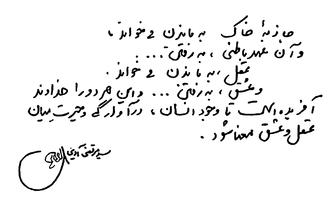 جاذبهٔ خاک به ماندن می‌خواند،
و آن عهد باطنی، به رفتن...
عقل، به ماندن می‌خواند.
و عشق، به رفتن... و این هر دو را خداوند
آفریده است تا وجود انسان، در آوارگی و حیرت میان
عقل و عشق معنا شود.
سید مرتضی آوینی